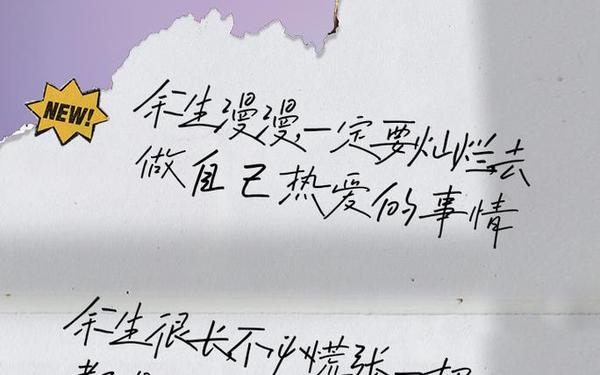 NEW!
余生漫漫,一定要灿烂去
做自己热爱的事情
余生很长不必慌张一切